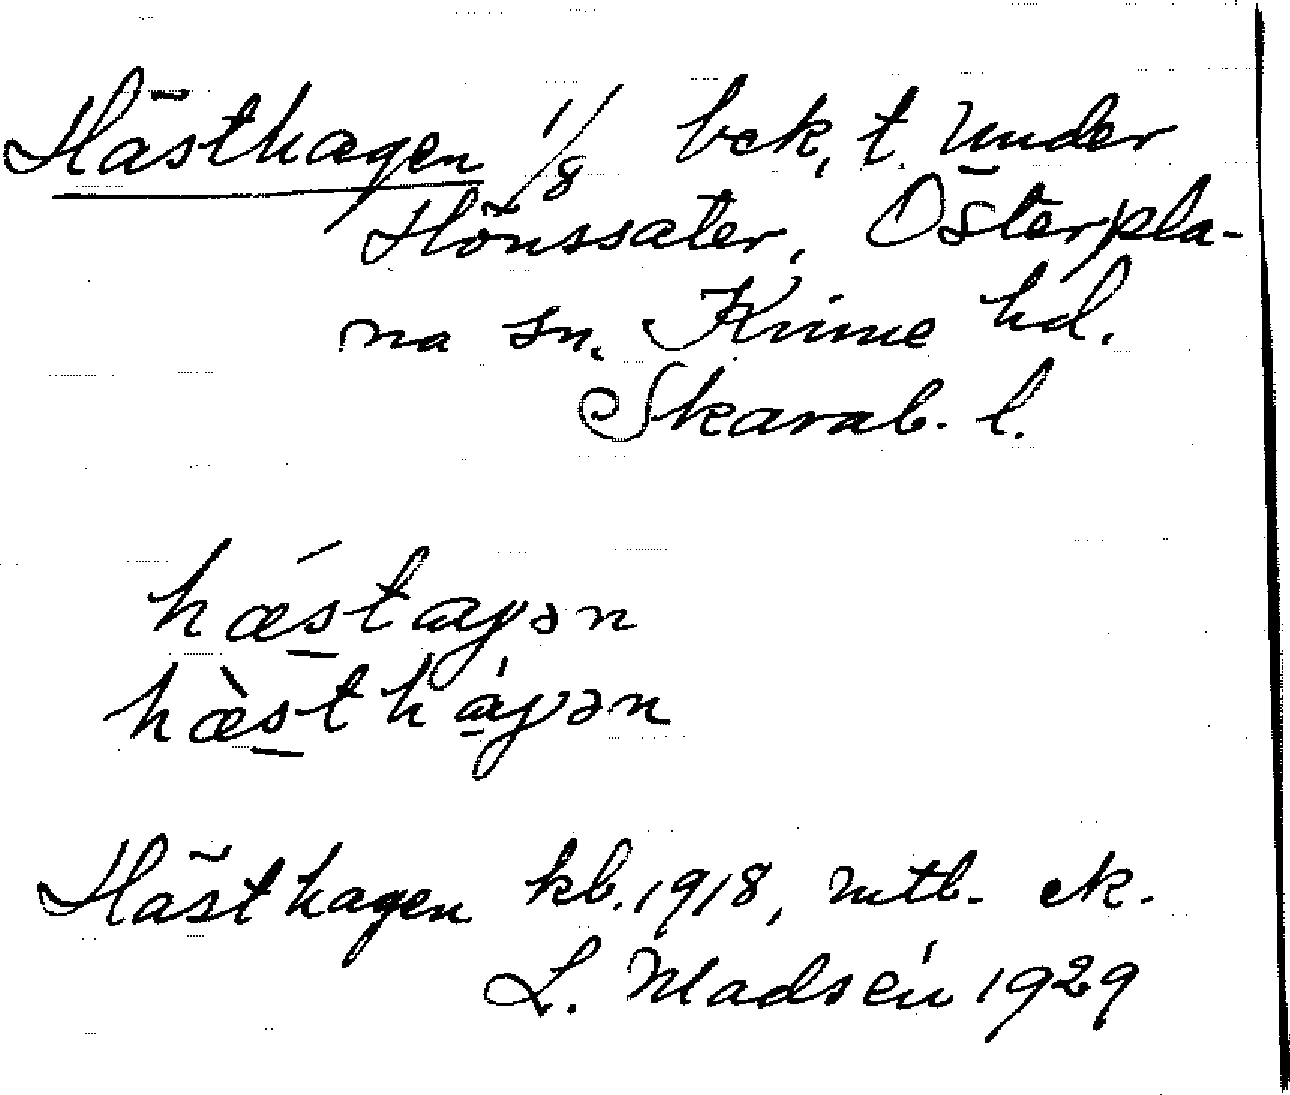 Hästhagen 1/8 bek. t. under
Hönssäter, Österpla-
na sn. Kinne hd.
Skarab. l.
hǽstaγən
hæ̀stháγən
Hästhagen kb. 1918, mtl. ek.
L. Madsén 1929